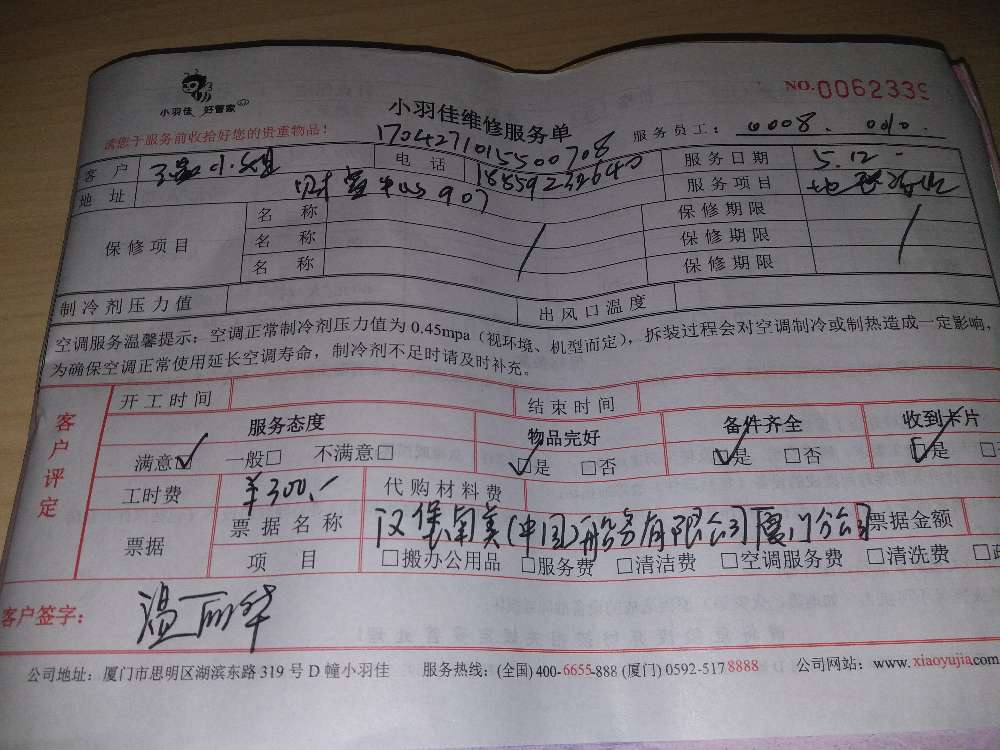 小羽佳 好管家
NO.0062339
小羽佳维修服务单
请您于服务前收拾好您的贵重物品！
1704271015500708
服务员工： 0008. 010.
客户 温小姐 电话 18859232640 服务日期 5.12
地址 财富中心907 服务项目
保修项目 名称 保修期限
名称 保修期限
名称 保修期限
制冷剂压力值 出风口温度
空调服务温馨提示：空调正常制冷剂压力值为0.45mpa（视环境、机型而定），拆装过程会对空调制冷或制热造成一定影响，
为确保空调正常使用延长空调寿命，制冷剂不足时请及时补充。
客户评定
开工时间 结束时间
服务态度 物品完好 备件齐全 收到卡片
满意☑ 一般□ 不满意□ ☑是 □否 ☑是 □否 ☑是
工时费 ¥300.- 代购材料费
票据 票据名称 汉堡南美(中国)船务有限公司厦门分公司 票据金额
项目 □搬办公用品 □服务费 □清洁费 □空调服务费 □清洗费
客户签字： 温丽华
公司地址：厦门市思明区湖滨东路319号D幢小羽佳 服务热线：(全国)400-6655-888 (厦门)0592-5178888 公司网站：www.xiaoyujia.com